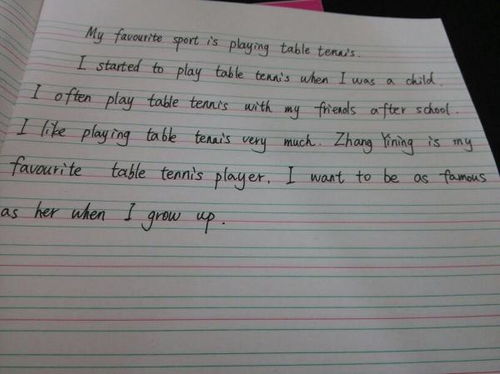 My favourite sport is playing table tennis.
I started to play table tennis when I was a child.
I often play table tennis with my friends after school.
I like playing table tennis very much. Zhang Yining is my
favourite table tennis player. I want to be as famous
as her when I grow up.